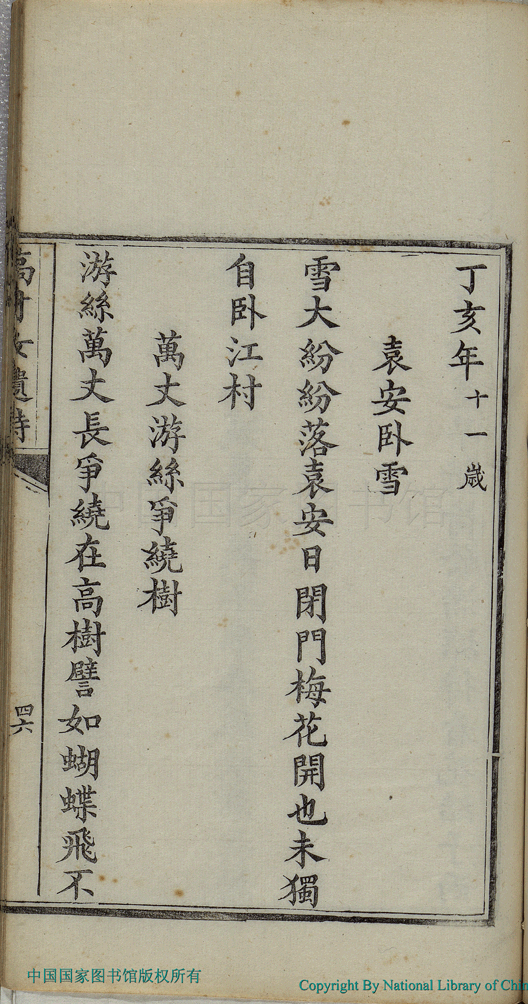 丁亥年十一歲
袁安卧雪
雪大紛紛落袁安日閉門梅花開也未獨
自卧江村
萬丈游絲爭繞樹
游絲萬丈長爭繞在高樹譬如蝴蝶飛不
四六
中国国家图书馆
中国国家图书馆版权所有
Copyright By National Library of